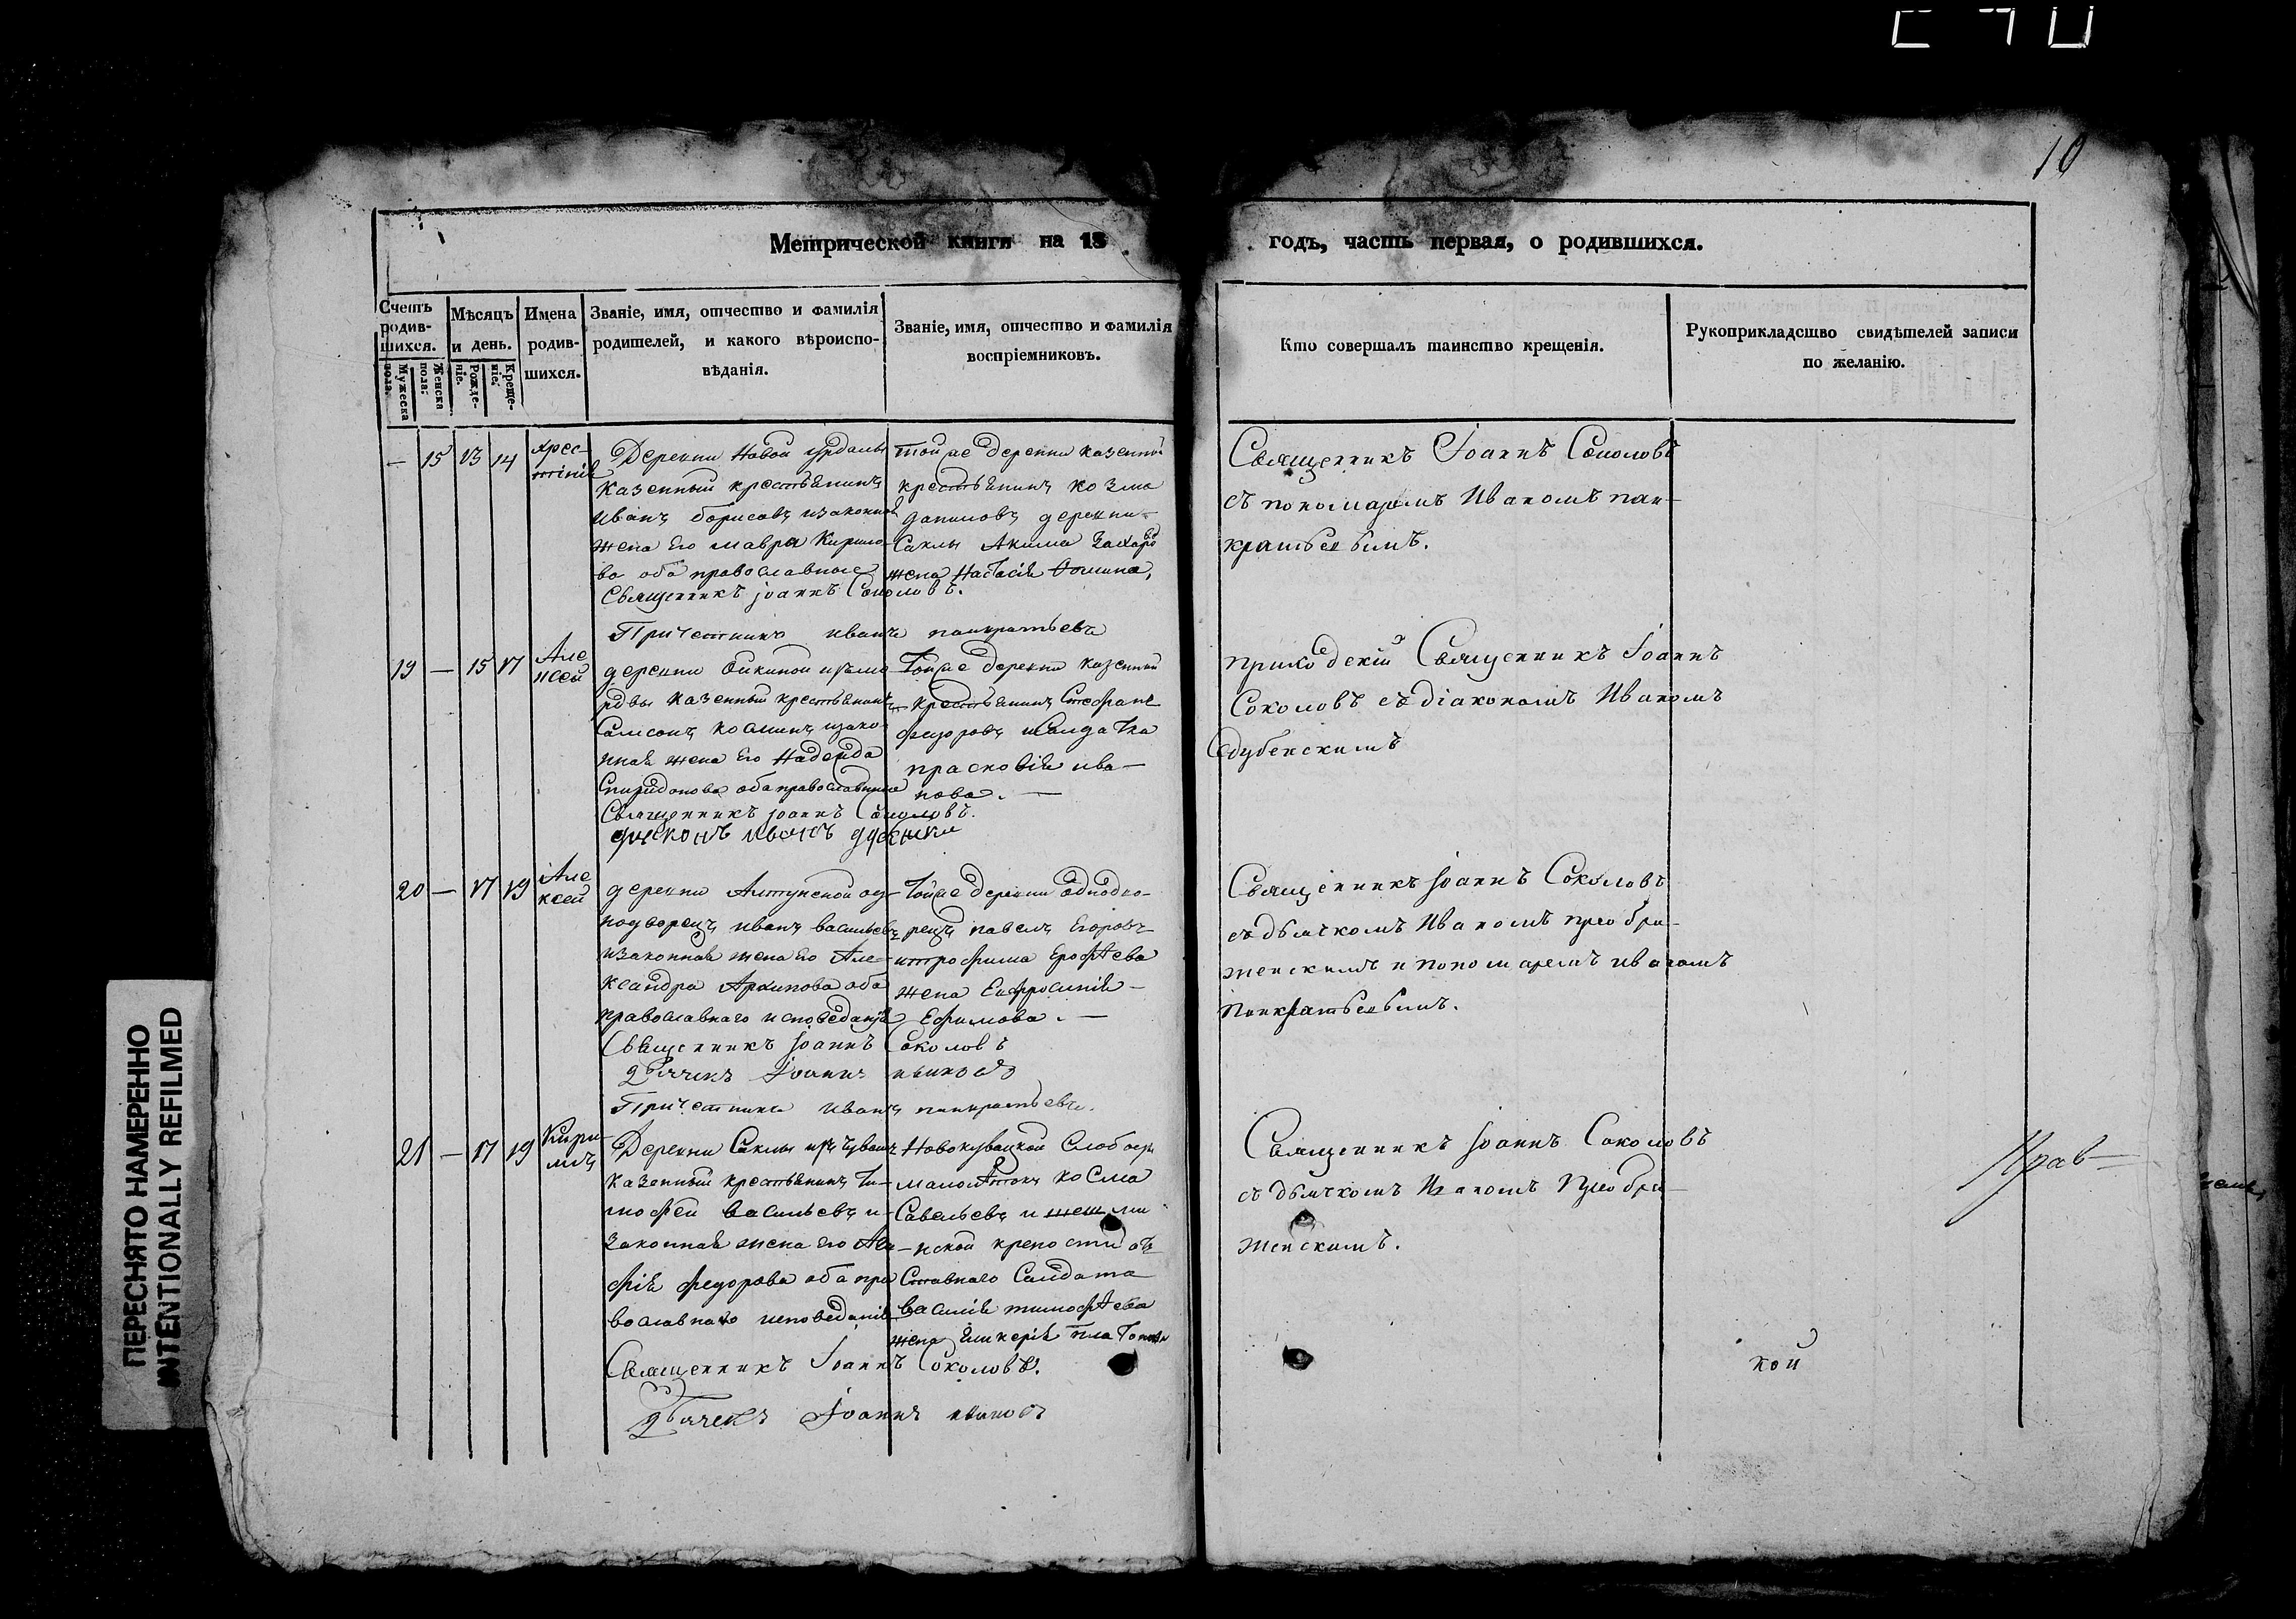 10
Метрической книги на 18
годъ, часть первая, о родившихся.
Счетъ родив-шихся.
Мужеска пола.
Женска пола.
Мѣсяцъ и день.
Рожде-ніе.
Креще-ніе.
Имена родив-шихся.
Званіе, имя, отчество и фамилія
родителей, и какого вѣроиспо-
вѣданія.
Званіе, имя, отчество и фамилія
воспріемниковъ.
Кто совершалъ таинство крещенія.
Рукоприкладство свидѣтелей записи
по желанію.
— 15 13 14
Хрес-
тинія
Деревни Новой
казенный крестьянинъ
Иванъ борисовъ изаконная
жена Его мавра Кирило-
ва оба православные
Священникъ Іоаннъ Соколовъ.
Причетникъ иванъ панкратьевъ
тойже деревни казенной
крестьянинъ козма
даниловъ деревни
Саклы Акима Захаро
жена Настасія Фомина,
Священникъ Іоаннъ Соколовъ
съ пономаремъ Иваномъ пан-
кратьевымъ.
19 — 15 17
Але
ксей
деревни
казенный крестьянинъ
Самсонъ козминъ изако-
нная жена Его Надежда
Спиридонова оба православные
Священникъ Іоаннъ Соколовъ.
тойже деревни казенный
крестьянинъ Стефанъ
федоровъ исолдатка
прасковія ива-
нова. —
приходскій Священникъ Іоаннъ
Соколовъ съ діакономъ Иваномъ
дубенскимъ
20 — 17 19
Але
ксей
деревни Алтунской од-
нодворецъ иванъ васильевъ
изаконная жена Его Але-
ксандра Архипова оба
православнаго исповеданія
Священникъ Іоаннъ Соколовъ
Дьячекъ Іоаннъ ивановъ
Причетникъ иванъ панкратьевъ.
тойже деревни однодво-
рецъ павелъ Егоровъ
итрофима Ерофѣева
жена Евфросинія —
Ефимова. —
Священникъ Іоаннъ Соколовъ
съ дьячкомъ Иваномъ преобра-
женскимъ и пономаремъ иваномъ
панкратьевымъ.
21 — 17 19
Кири
лъ
Деревни Саклы изъ чувашъ
казенный крестьянинъ Ти-
мофей васильевъ и
законная жена его Ага-
фія федорова оба пра
вославнаго исповеданія
Священникъ Іоаннъ Соколовъ.
Дьячекъ Іоаннъ ивановъ
Новокувацкой Слободы
косма
Савельевъ и
-нской крепости от
ставнаго Салдата
василія тимофѣева
жена Гликерія платонова
Священникъ Іоаннъ Соколовъ
съ дьячкомъ Иваномъ Преобра-
женскимъ.
Прав-
ной
ПЕРЕСНЯТО НАМЕРЕННО
INTENTIONALLY REFILMED